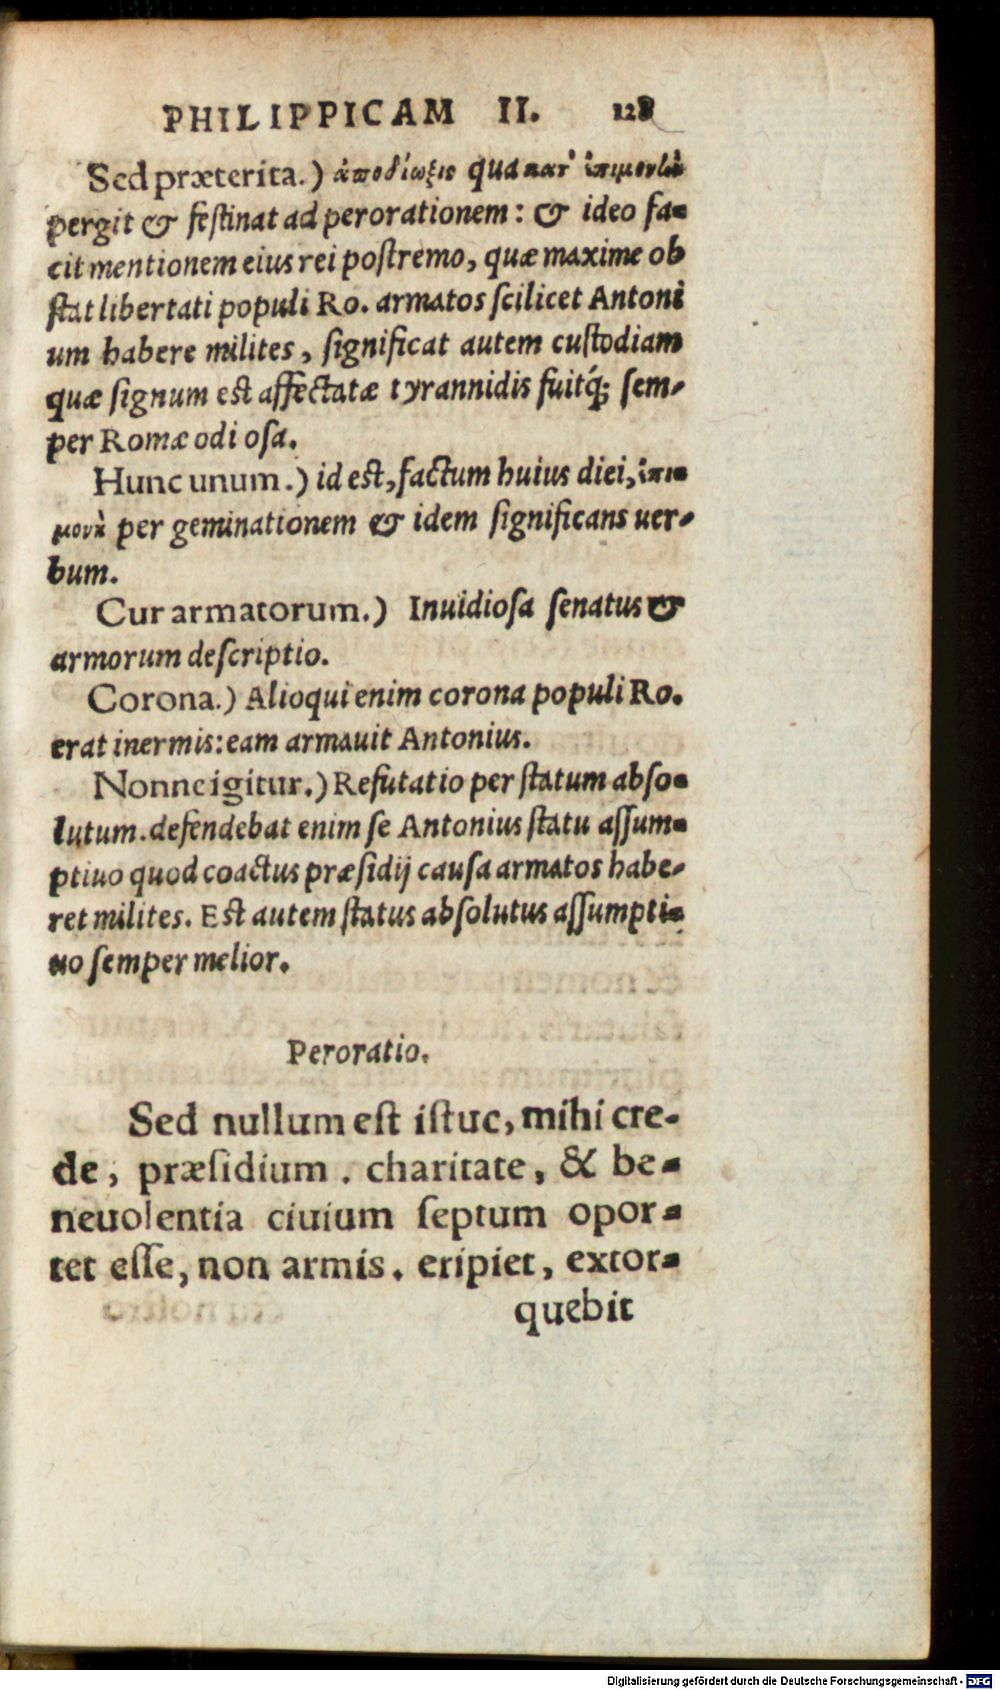 PHILIPPICAM II. 128
Sed præterita.) ἀποδίωξις qua κατ' ἐπιμονὴν
pergit & festinat ad perorationem: & ideo fa-
cit mentionem eius rei postremo, quæ maxime ob
stat libertati populi Ro. armatos scilicet Antoni
um habere milites, significat autem custodiam
quæ signum est affectatæ tyrannidis fuitq́; sem-
per Romæ odiosa.
Hunc unum.) id est, factum huius diei, ἐπι-
μονὴ per geminationem & idem significans uer-
bum.
Cur armatorum.) Inuidiosa senatus &
armorum descriptio.
Corona.) Alioqui enim corona populi Ro.
erat inermis: eam armauit Antonius.
Nonne igitur.) Refutatio per statum abso-
lutum. defendebat enim se Antonius statu assum-
ptiuo quod coactus præsidij causa armatos habe-
ret milites. Est autem status absolutus assumpti-
uo semper melior.
Peroratio.
Sed nullum est istuc, mihi cre-
de, præsidium. charitate, & be-
neuolentia ciuium septum opor-
tet esse, non armis. eripiet, extor-
quebit
Digitalisierung gefördert durch die Deutsche Forschungsgemeinschaft - DFG